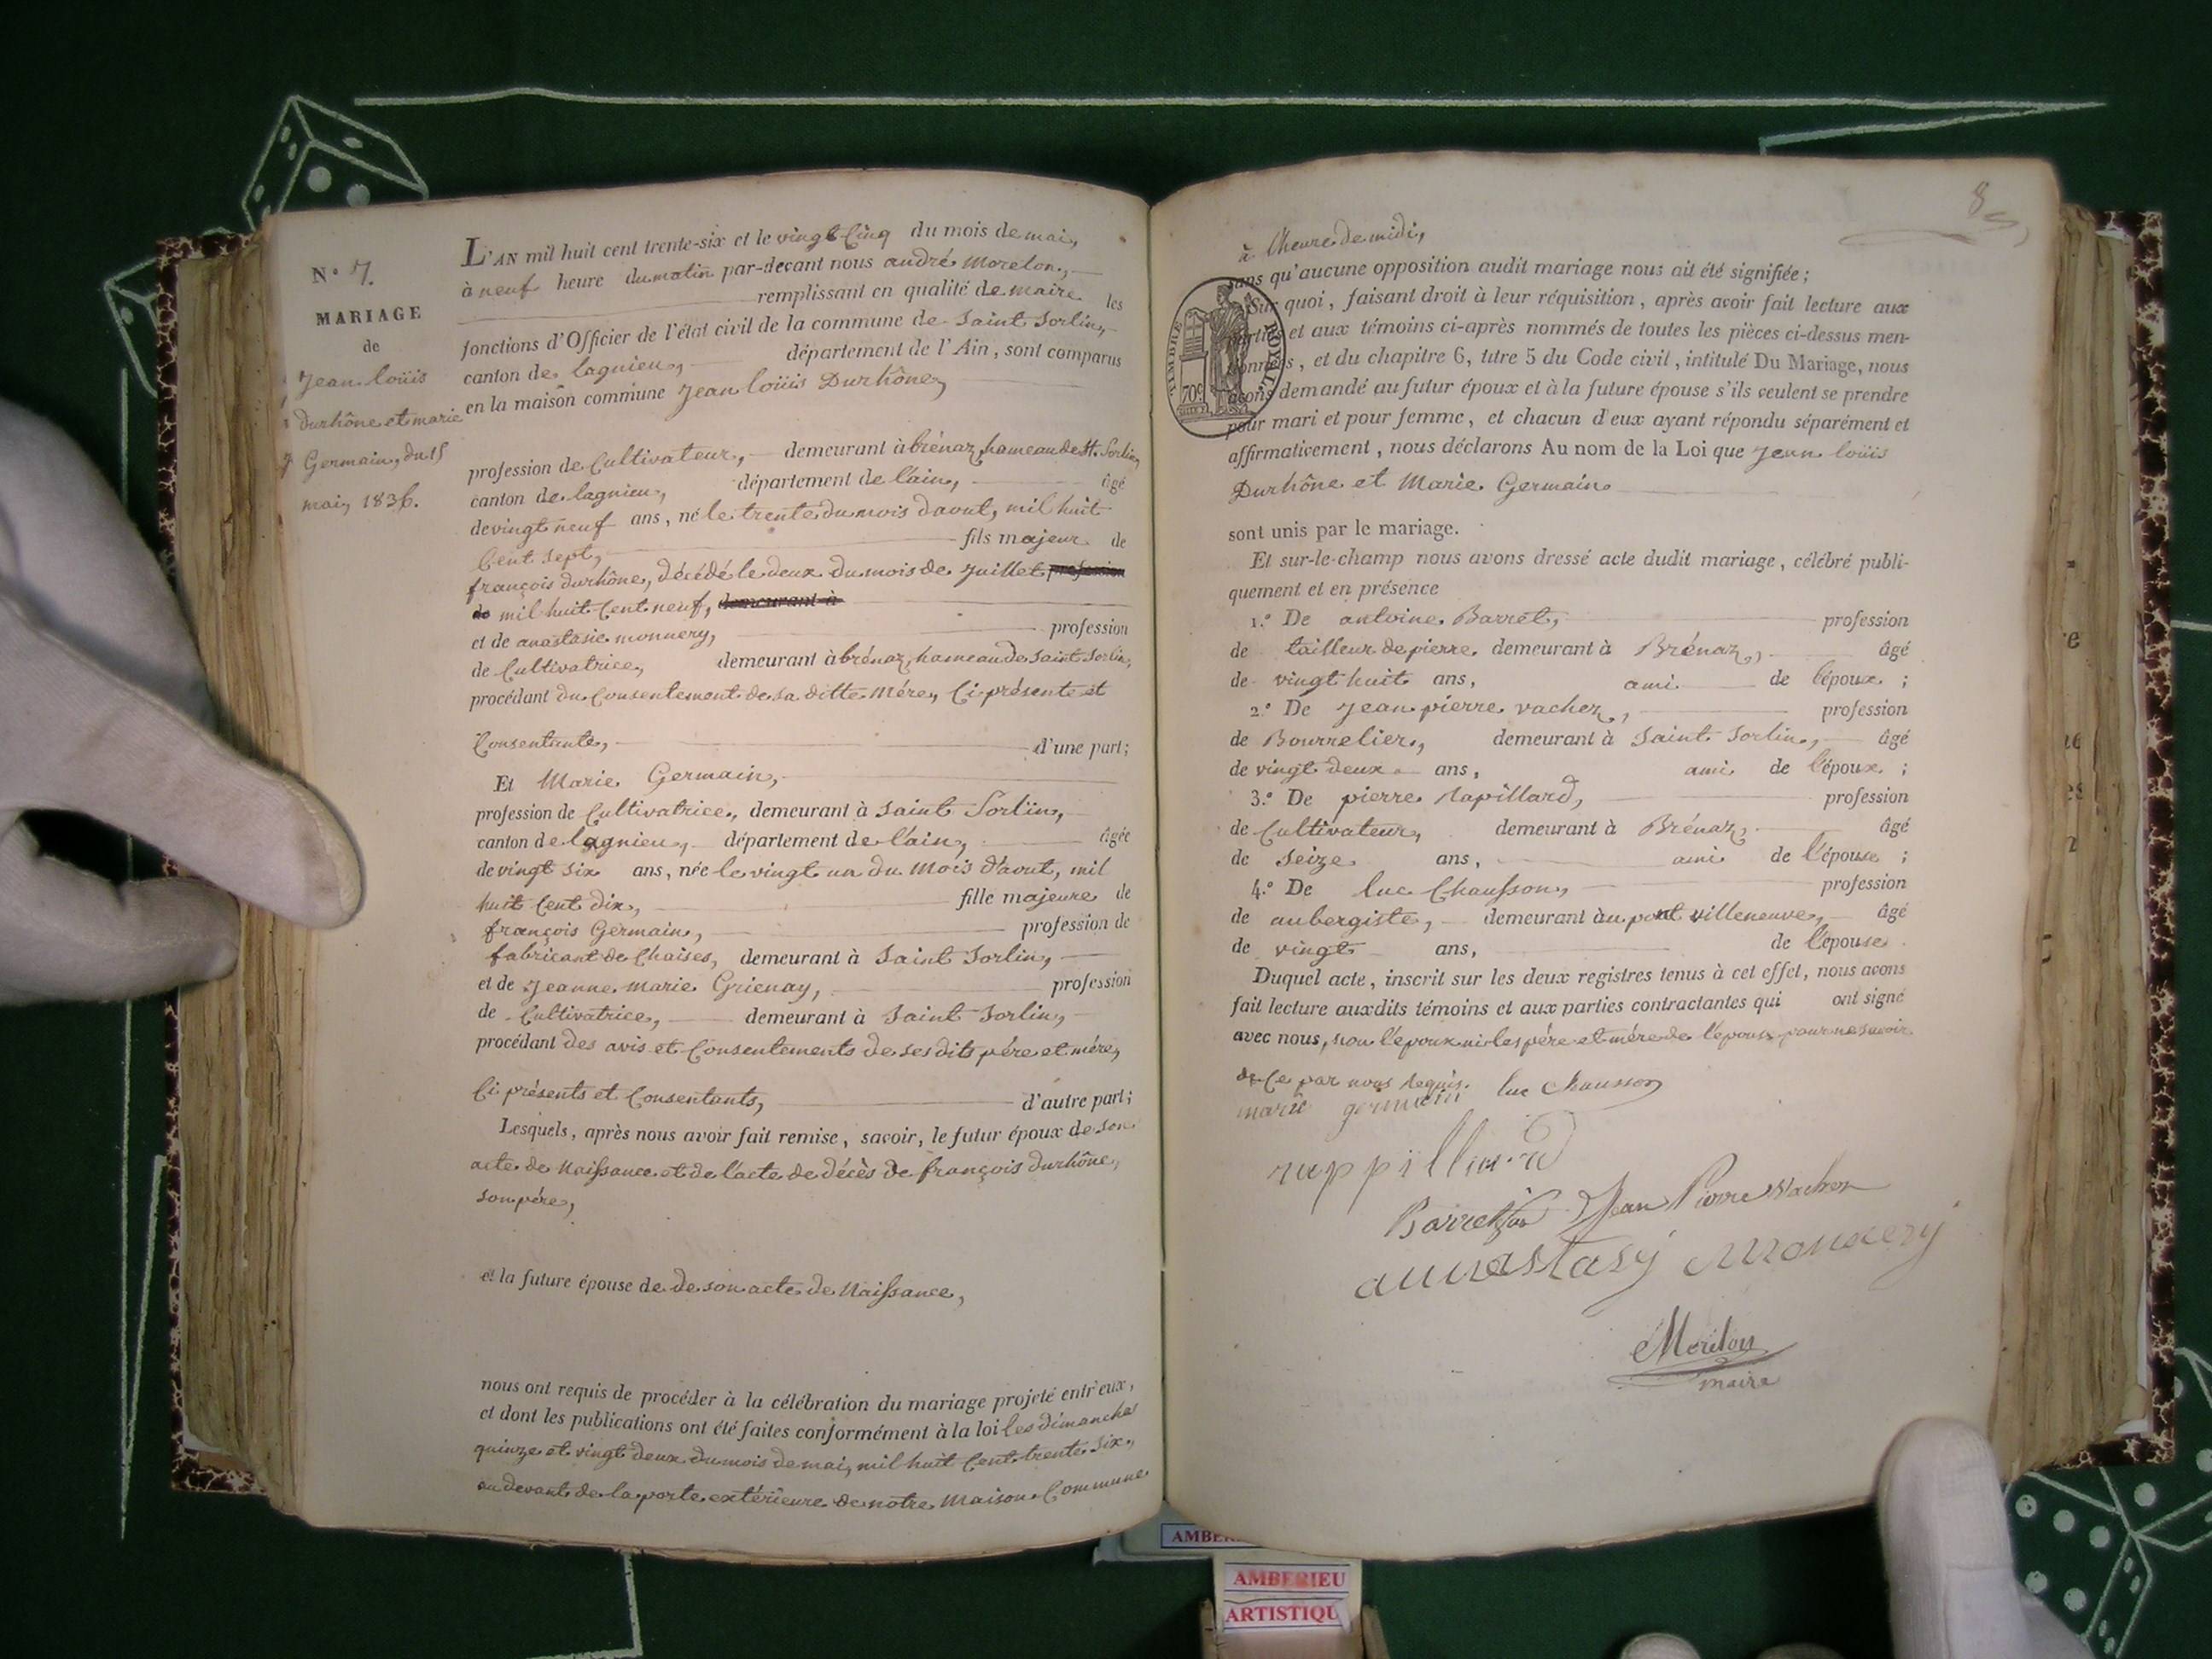 N° 7.
MARIAGE
de
Jean loüis
Durhône et marie
Germain, du 25
mai, 1836.
L'AN mil huit cent trente-six et le vingt Cinq du mois de mai,
à neuf heure du matin par-devant nous andré Morelon,
remplissant en qualité de maire les
fonctions d'Officier de l'état civil de la commune de Saint Sorlin,
canton de lagnieu, département de l'Ain, sont comparus
en la maison commune Jean loüis Durhône,
profession de Cultivateur, demeurant à brénaz, hameau de St. Sorlin,
canton de lagnieu, département de l'ain, âgé
de vingt neuf ans, né le trente du mois d'aout, mil huit
Cent sept, fils majeur de
françois durhône, décédé le deux du mois de Juillet profession
de mil huit Cent neuf, demeurant à
et de anastasie monnery, profession
de Cultivatrice, demeurant à brénaz, hameau de Saint Sorlin,
procédant du Consentement de sa ditte Mére, Ci présente et
Consentante, d'une part;
Et Marie Germain,
profession de Cultivatrice, demeurant à Saint Sorlin,
canton de lagnieu, département de l'ain, âgée
de vingt six ans, née le vingt un du Mois d'aout, mil
huit Cent dix, fille majeure de
françois Germain, profession de
fabricant de Chaises, demeurant à Saint Sorlin,
et de Jeanne Marie Grienay, profession
de Cultivatrice, demeurant à Saint Sorlin,
procédant des avis et Consentements de ses dits pére et mére,
Ci présents et Consentants, d'autre part;
Lesquels, après nous avoir fait remise, savoir, le futur époux de son
acte de Naissance et de l'acte de décès de françois durhône,
son pére,
et la future épouse de de son acte de Naissance,
nous ont requis de procéder à la célébration du mariage projeté entr'eux,
et dont les publications ont été faites conformément à la loi les dimanches
quinze et vingt deux du mois de mai, mil huit Cent trente six,
au devant de la porte extérieure de notre Maison Commune
8
à l'heure de midi,
sans qu'aucune opposition audit mariage nous ait été signifiée;
Sur quoi, faisant droit à leur réquisition, après avoir fait lecture aux
parties et aux témoins ci-après nommés de toutes les pièces ci-dessus men-
tionnées, et du chapitre 6, titre 5 du Code civil, intitulé Du Mariage, nous
avons demandé au futur époux et à la future épouse s'ils veulent se prendre
pour mari et pour femme, et chacun d'eux ayant répondu séparément et
affirmativement, nous déclarons Au nom de la Loi que Jean loüis
Durhône et Marie Germain
sont unis par le mariage.
Et sur-le-champ nous avons dressé acte dudit mariage, célébré publi-
quement et en présence
1.° De antoine Barret, profession
de tailleur de pierre demeurant à Brénaz, âgé
de vingt huit ans, ami de l'époux ;
2.° De Jean pierre vachez, profession
de Bourrelier, demeurant à Saint Sorlin, âgé
de vingt deux ans, ami de l'époux ;
3.° De pierre Rapillard, profession
de Cultivateur, demeurant à Brénaz, âgé
de seize ans, ami de l'épouse ;
4.° De luc Chausson, profession
de aubergiste, demeurant au pont villeneuve, âgé
de vingt ans, de l'épouse
Duquel acte, inscrit sur les deux registres tenus à cet effet, nous avons
fait lecture auxdits témoins et aux parties contractantes qui ont signé
avec nous, non l'époux ni les pére et mére de l'épouse pour ne savoir
de Ce par nous requis.
marie germain luc Chausson
rappillard
Barret Jean Pierre Vachez
Morelon
maire
TIMBRE ROYAL
70c
AMBERIEU
ARTISTIQU